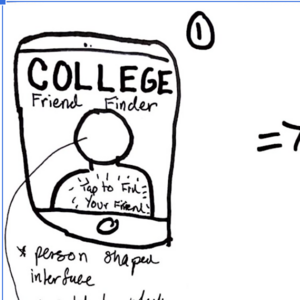 ①
COLLEGE
Friend Finder
Tap to Find
Your Friend
=7
* person shaped
interface